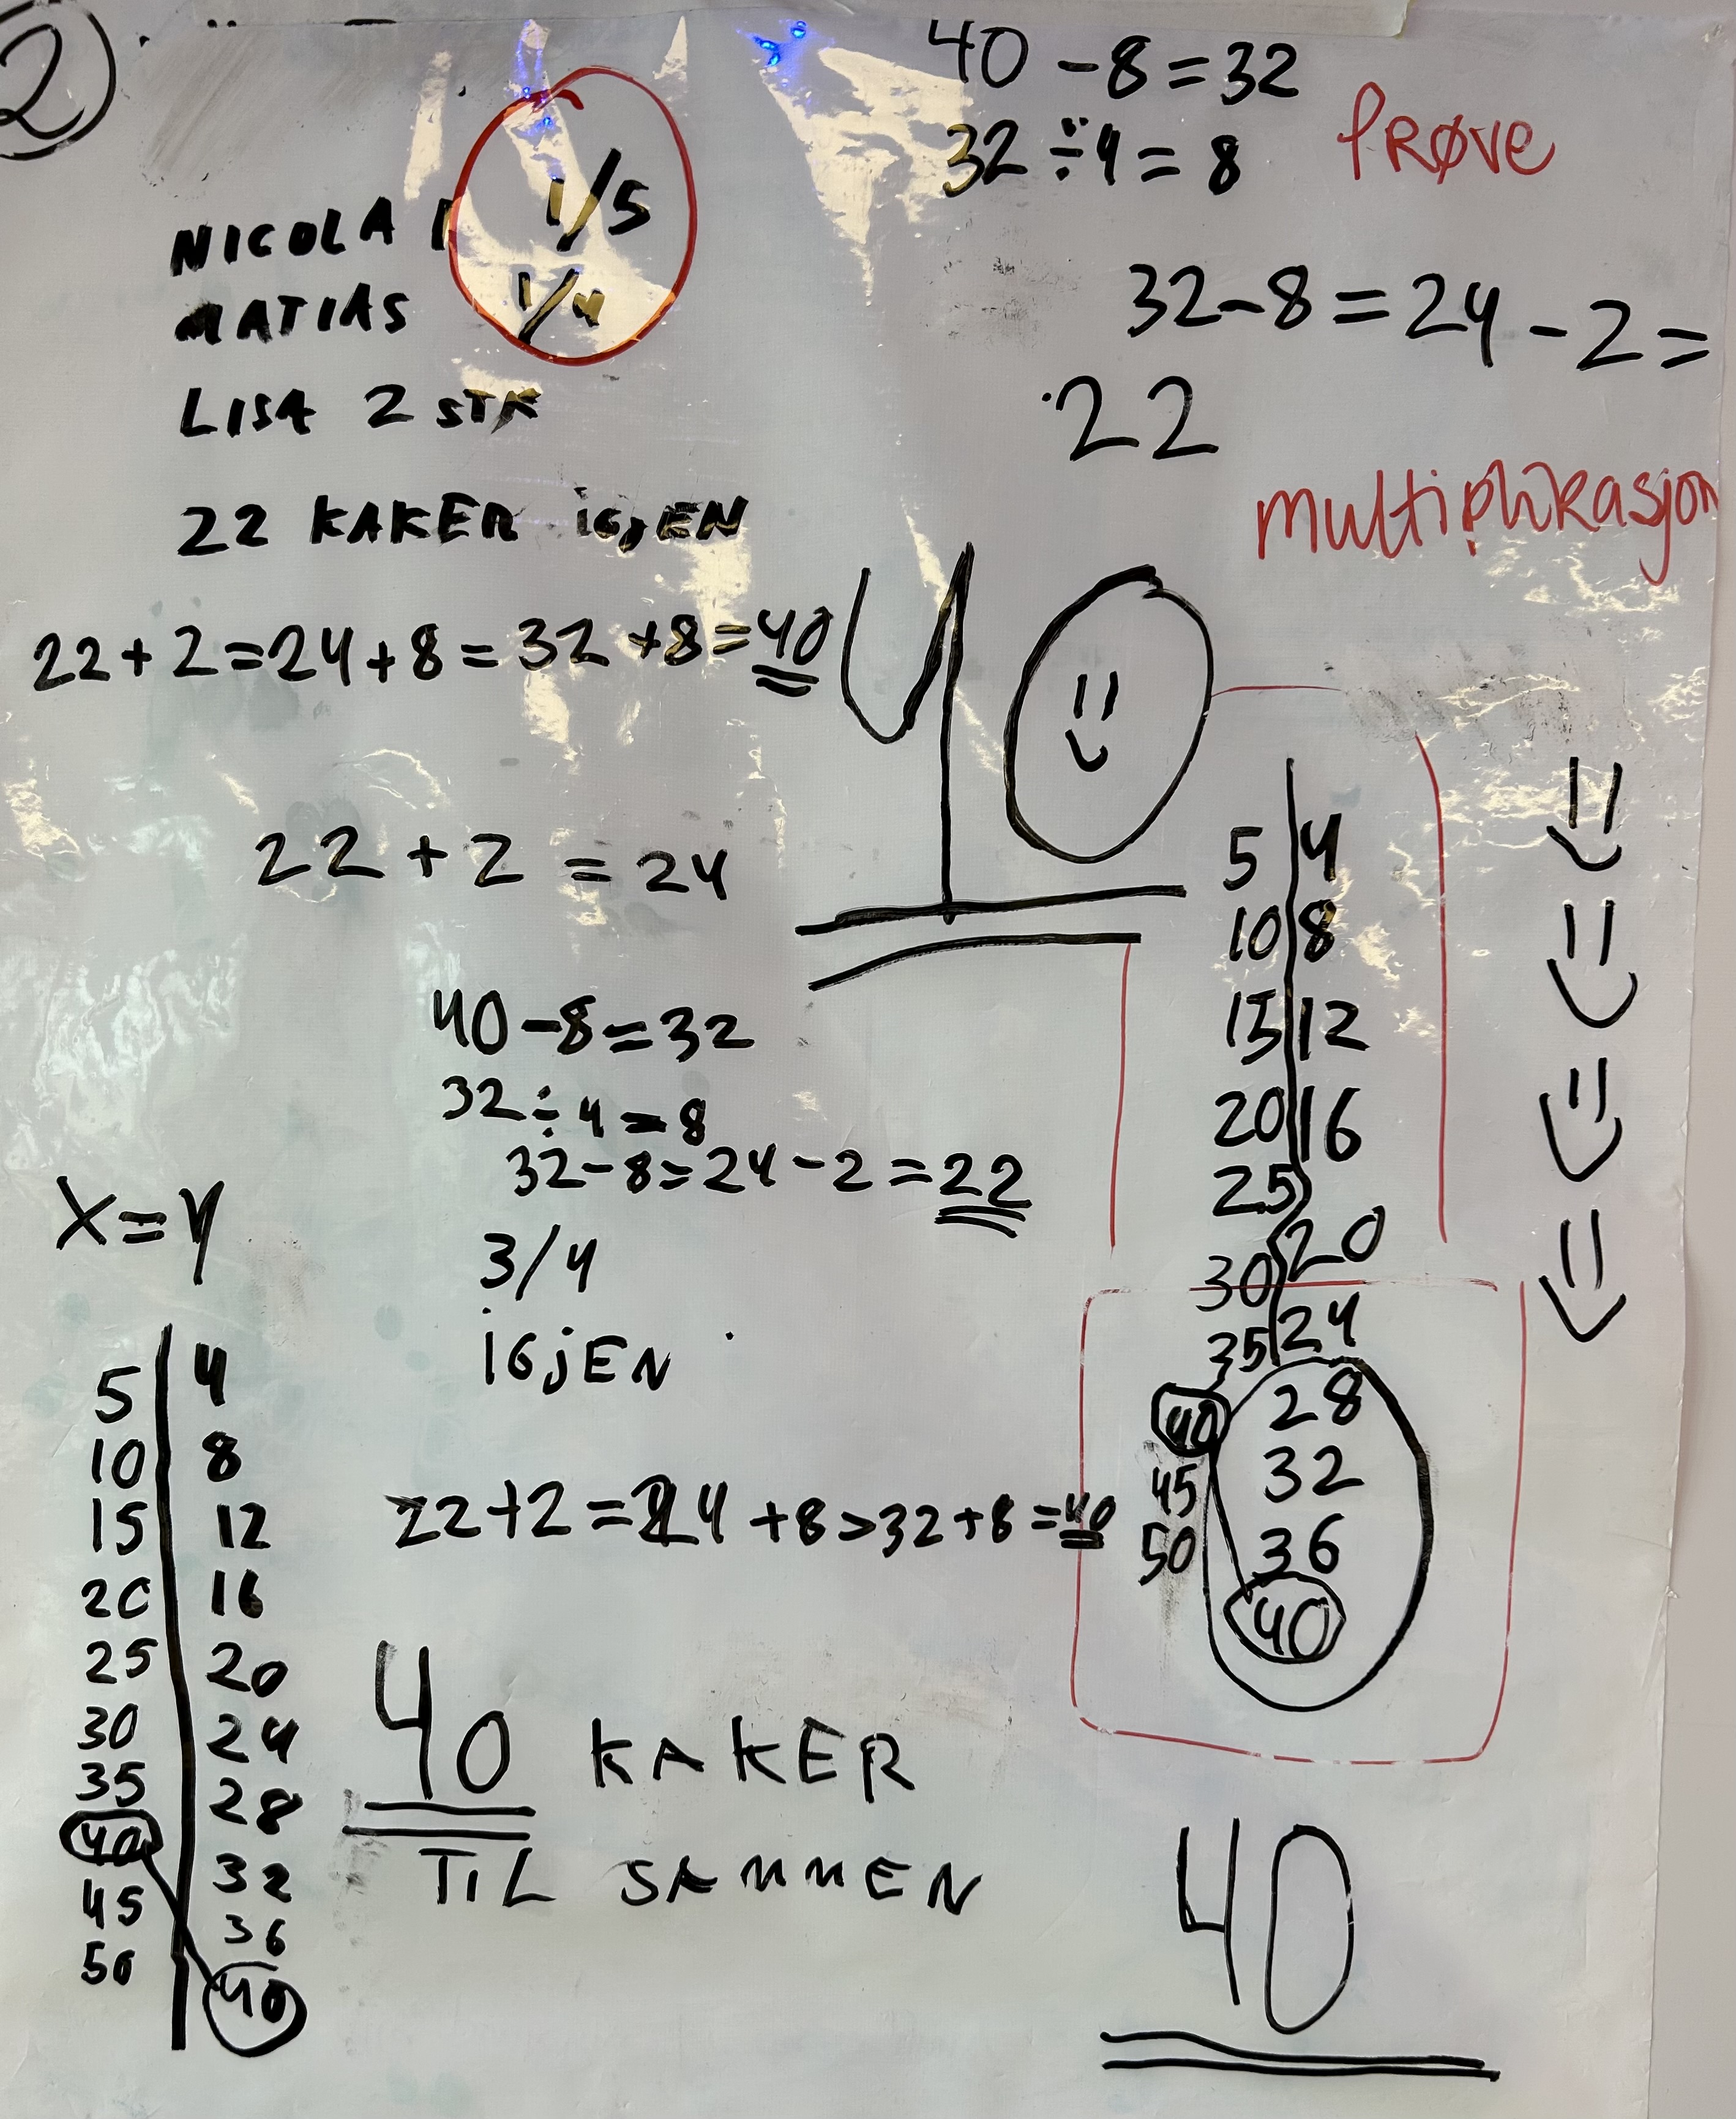 2
40 - 8 = 32
32 ÷ 4 = 8
PRØVE
NICOLAI 1/5
MATIAS 1/4
LISA 2 STK
32 - 8 = 24 - 2 =
22
22 KAKER iGjEN
multiplikasjon
22 + 2 = 24 + 8 = 32 + 8 = 40
40
22 + 2 = 24
40 - 8 = 32
32 ÷ 4 = 8
32 - 8 = 24 - 2 = 22
3/4
iGjEN
5 4
10 8
15 12
20 16
25 20
30 24
35 28
40 32
45 36
50 40
X = Y
5 4
10 8
15 12
20 16
25 20
30 24
35 28
40 32
45 36
50 40
22 + 2 = 24 + 8 > 32 + 8 = 40
40 KAKER
TiL SAMMEN
40